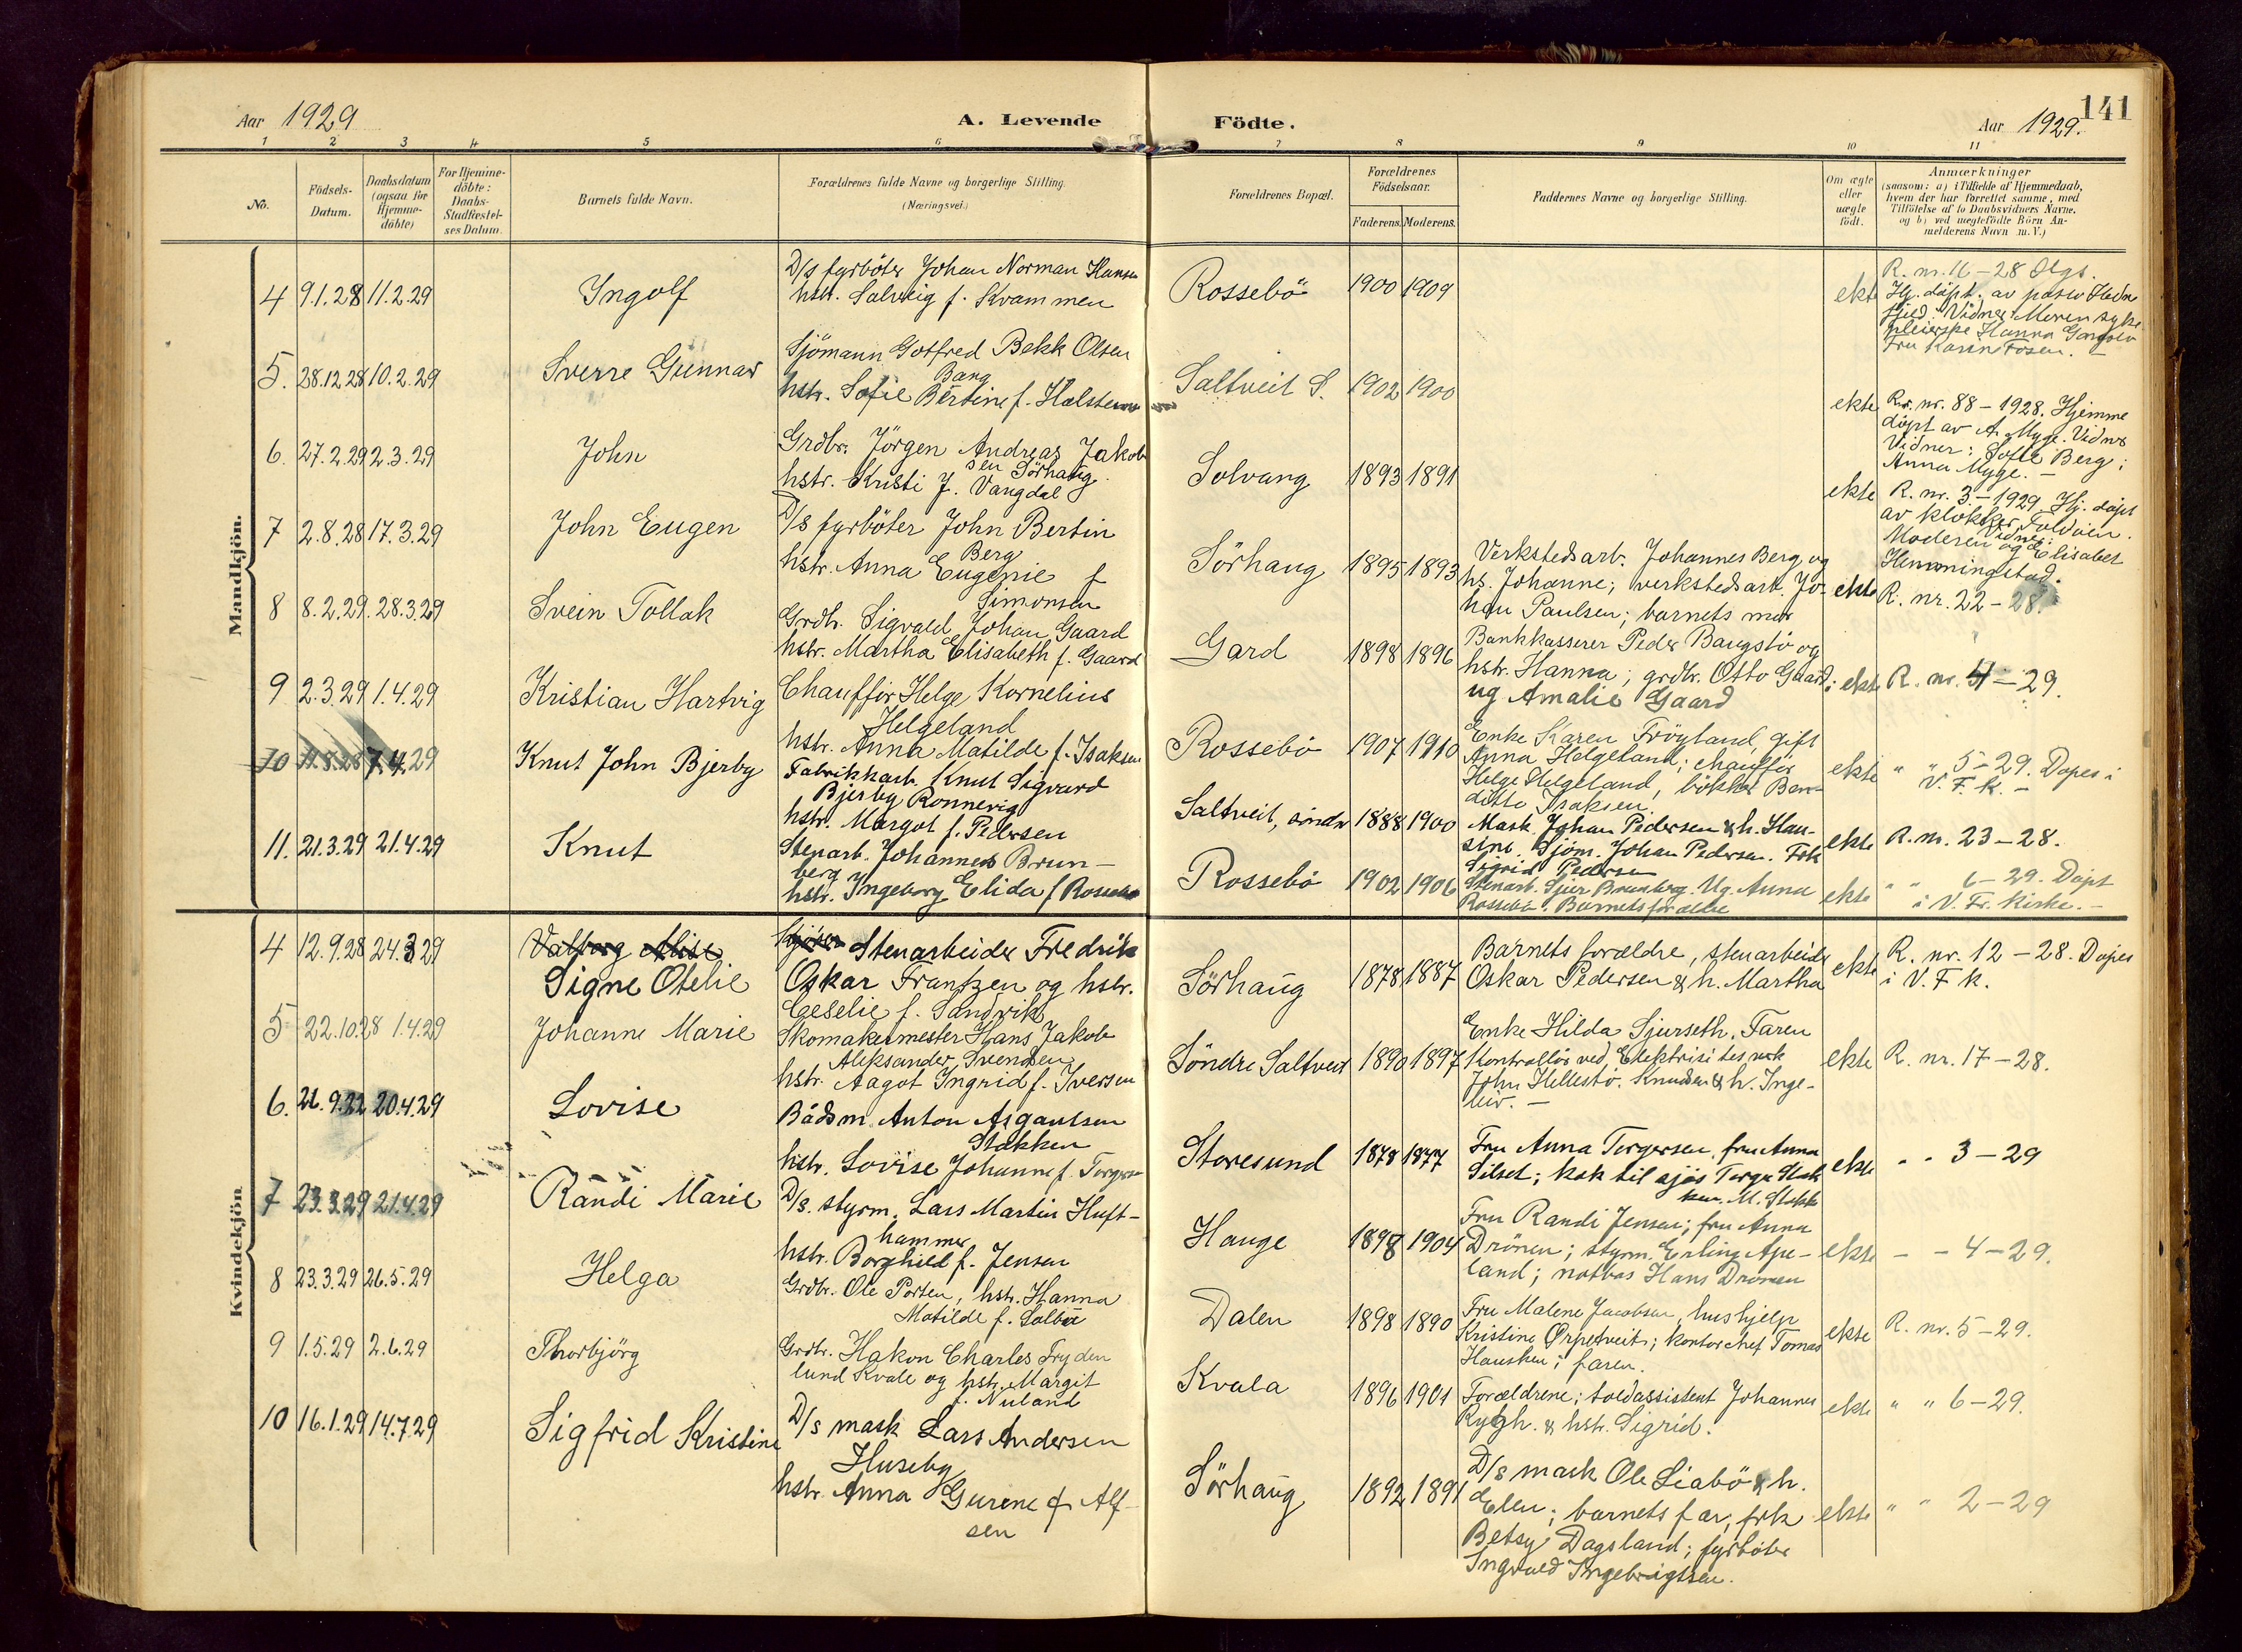 Aar 1929
A. Levende Födte.
Aar 1929.
141
1 2 3 4 5 6 7 8 9 10 11
No.
Födsels-Datum.
Daabsdatum (ogsaa for Hjemme-döbte)
For Hjemme-döbte: Daabs-Stadfæstel-ses Datum.
Barnets fulde Navn.
Forældrenes fulde Navne og borgerlige Stilling. (Næringsvei.)
Forældrenes Bopæl.
Forældrenes Födselsaar.
Faderens. Moderens.
Faddernes Navne og borgerlige Stilling.
Om ægte eller uægte födt.
Anmærkninger
(saasom: a) i Tilfælde af Hjemmedaab,
hvem der har forrettet samme, med
Tilföielse af to Daabsvidners Navne,
og b) ved uægtefödte Börn An-
melderens Navn m. V.)
Mandkjön.
4 9.1.28 11.2.29 Ingolf
D/s fyrböter Johan Norman Hansen
hstr. Solveig f. Kvammen
Rossebö 1900 1909
ekte
R. nr. 16-28
Hj. döpt av
Vidner: Moren syke
pleierske Hanna
Fru Karin Fosen. -
5. 28.12.28 10.2.29 Sverre Gunnar
Sjömann Gotfred Bekk Olsen
Bang
hstr. Sofie Bertine f. Halsten
Saltveit S. 1902 1900
ekte
R. nr. 88-1928. Hjemme
döpt av A. Myge. Vidner
Vidner: Sofie Berg;
Anna Myge. -
6. 27.2.29 2.3.29 John
Grdbr. Jörgen Andreas Jakob
sen Sörhaug.
hstr. Kristi J. Vangdal
Solvang 1893 1891
ekte
R. nr. 3-1929. Hj. döpt
av klokker Foldöien.
Vidner:
Moderen og Elisabet
Hemmingstad.
7 2.8.28 17.3.29 John Eugen
D/s fyrböter John Bertin
Berg
hstr. Anna Eugenie f
Simonsen
Sörhaug 1895 1893
Verkstedsarb. Johannes Berg og
hs. Johanne; verkstedsarb. Jo-
han Paulsen; barnets mor
ekte
R. nr. 22-28.
8 8.2.29. 28.3.29 Svein Tollak
Grdbr. Sigvald Johan Gaard
hstr. Martha Elisabeth f. Gaard
Gard 1898 1896
Bankkasserer Peder Baugstö og
hstr. Hanna; grdbr. Otto Gaard;
ug Amalie Gaard
ekte
R. nr. 4-29.
9 2.3.29 1.4.29 Kristian Hartvig
Chaufför Helge Kornelius
Helgeland
hstr. Anna Matilde f. Isaksen
Rossebö 1907 1910
Enke Karen Fröyland, gift
Anna Helgeland; chaufför
Helge Helgeland, bökker Ben-
ditto Isaksen
ekte
" " 5-29. Döpes i
V. F. k. -
10 11.8.28 7.4.29 Knut John Bjerby
Fabrikkarb. Knut Sigvard
Bjerby Rönnevig
hstr. Margot f. Pedersen
Saltveit, söndre 1888 1900
Mask. Johan Pedersen & h. Han-
sine. Sjöm. Johan Pedersen. Frk
Sigrid Pedersen
ekte
R. nr. 23-28.
11. 21.3.29 21.4.29 Knut
Stenarb. Johannes Brun-
berg
hstr. Ingeborg Elida f Rossebö
Rossebö 1902 1906
Stenarb. Sjur Brunberg. Ug. Anna
Rossebö. Barnets forældre
ekte
" " 6-29. Döpt
i V. Fr. kirke. -
Kvindekjön
4 12.9.28 24.3.29 Valborg Alise
Signe Otelie
Stenarbeider Fredrik
Oskar Frantzen og hstr.
Ceselie f. Sandvik
Sörhaug 1878 1887
Barnets forældre, stenarbeider
Oskar Pedersen & h. Martha
ekte
R. nr. 12-28. Döpes
i V. F k.
5 22.10.28 1.4.29 Johanne Marie
Skomakermester Hans Jakob
Aleksander Svendsen
hstr. Aagot Ingrid f. Iversen
Söndre Saltveit 1890 1897
Enke Hilda Sjurseth. Faren
Kontrollör ved Elektrisitetsverk
John Hellestö. Knudsen & h. Inge-
ekte
R. nr. 17-28.
6. 21.9.22 20.4.29 Lovise
Bådsm. Anton Asgautsen
Stakken
hstr. Lovise Johanne f. Torgersen
Storesund 1878 1877
Fru Anna Torgersen, fru Anna
Silset; kok til sjös Torger Stak
ken. M. Stakk
ekte
" " 3-29
7 23.3.29 21.4.29 Randi Marie
D/s. styrm. Lars Martin Huft-
hammer
hstr. Borghild f. Jensen
Hauge 1898 1904
Fru Randi Jensen; fru Anna
Drönen; styrm. Erling Ape-
land; notbas Hans Drönen
ekte
- - 4-29.
8 23.3.29 26.5.29 Helga
Grdbr. Ole Porten, hstr. Hanna
Matilde f. Salbu
Dalen 1898 1890
Fru Malene Jacobsen, hushjelp
Kristine Örpetveit; kontorchef Tomas
Hausken; faren.
ekte
R. nr. 5-29.
9 1.5.29 2.6.29 Thorbjörg
Grdbr. Hakon Charles Fryden
lund Kvale og hstr. Margit
f. Nuland
Kvala 1896 1901
Forældrene; toldassistent Johannes
Rygh. & hstr. Sigrid.
ekte
" " 6-29.
10 16.1.29 14.7.29 Sigfrid Kristine
D/s mask Lars Andersen
Huseby
hstr. Anna Gurine f. Alf-
sen
Sörhaug 1892 1891
D/s mask Ole Liabö & h.
Elen; barnets far, frk
Betsy Dagsland; fyrböter
Ingvald Ingebrigtsen.
ekte
" " 2-29